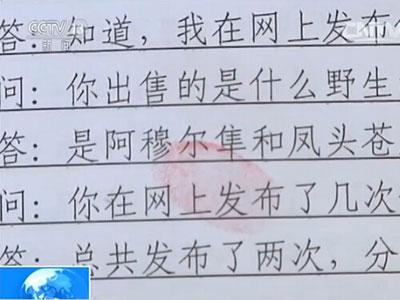 CCTV 13
新闻
答: 知道, 我在网上发布
问: 你出售的是什么野生
答: 是阿穆尔隼和凤头苍
问: 你在网上发布了几次
答: 总共发布了两次, 分